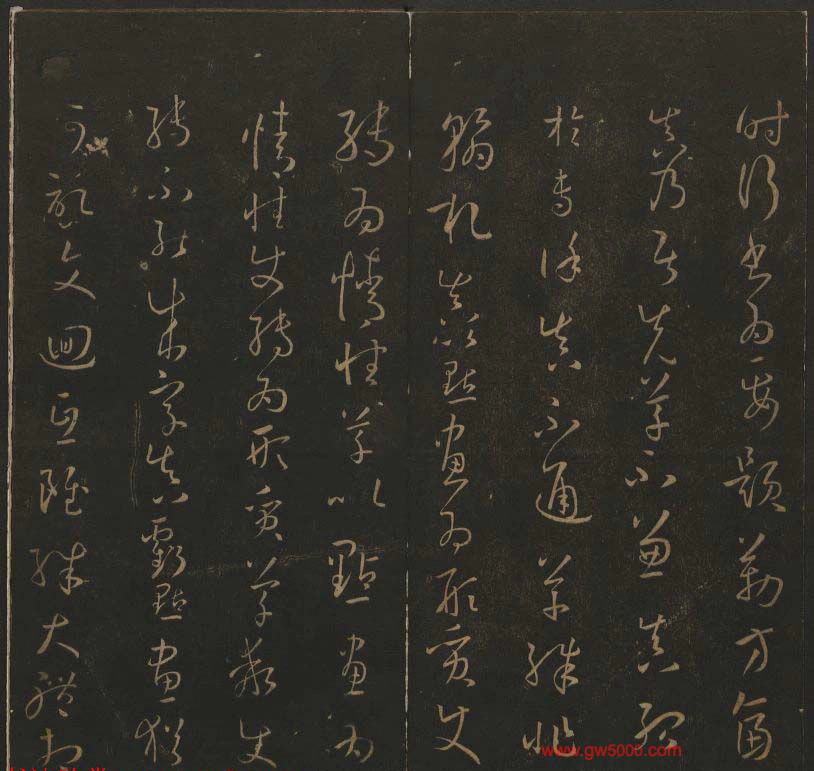 時行書為要題勒方畐
真乃居先草不兼真殆
於專謹真不通草殊非
翰札真以點畫為形質使
轉為情性草以點畫為
情性使轉為形質草乖使
轉不能成字真虧點畫猶
可記文迴互雖殊大體相
www.gw5000.com